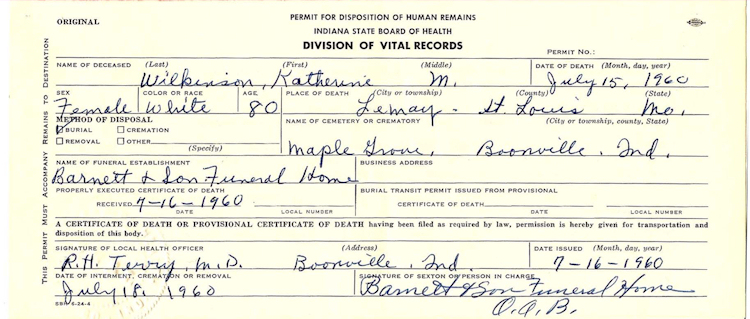 ORIGINAL
PERMIT FOR DISPOSITION OF HUMAN REMAINS
INDIANA STATE BOARD OF HEALTH
DIVISION OF VITAL RECORDS
PERMIT NO.:
THIS PERMIT MUST ACCOMPANY REMAINS TO DESTINATION
NAME OF DECEASED (Last) (First) (Middle) DATE OF DEATH (Month, day, year)
Wilkinson, Katherine M. July 15, 1960
SEX COLOR OR RACE AGE PLACE OF DEATH (City or township) (County) (State)
Female White 80 Lemay - St. Louis Mo.
METHOD OF DISPOSAL NAME OF CEMETERY OR CREMATORY (City or township, county, State)
BURIAL CREMATION
REMOVAL OTHER (Specify)
Maple Grove, Boonville, Ind.
NAME OF FUNERAL ESTABLISHMENT BUSINESS ADDRESS
Barnett & Son Funeral Home
PROPERLY EXECUTED CERTIFICATE OF DEATH BURIAL TRANSIT PERMIT ISSUED FROM PROVISIONAL
RECEIVED 7-16-1960 CERTIFICATE OF DEATH
DATE LOCAL NUMBER DATE LOCAL NUMBER
A CERTIFICATE OF DEATH OR PROVISIONAL CERTIFICATE OF DEATH having been filed as required by law, permission is hereby given for transportation and
disposition of this body.
SIGNATURE OF LOCAL HEALTH OFFICER (Address) DATE ISSUED (Month, day, year)
R.H. Terry, M.D. Boonville, Ind. 7-16-1960
DATE OF INTERMENT, CREMATION OR REMOVAL SIGNATURE OF SEXTON OR PERSON IN CHARGE
July 18, 1960 Barnett & Son Funeral Home
6-24-4